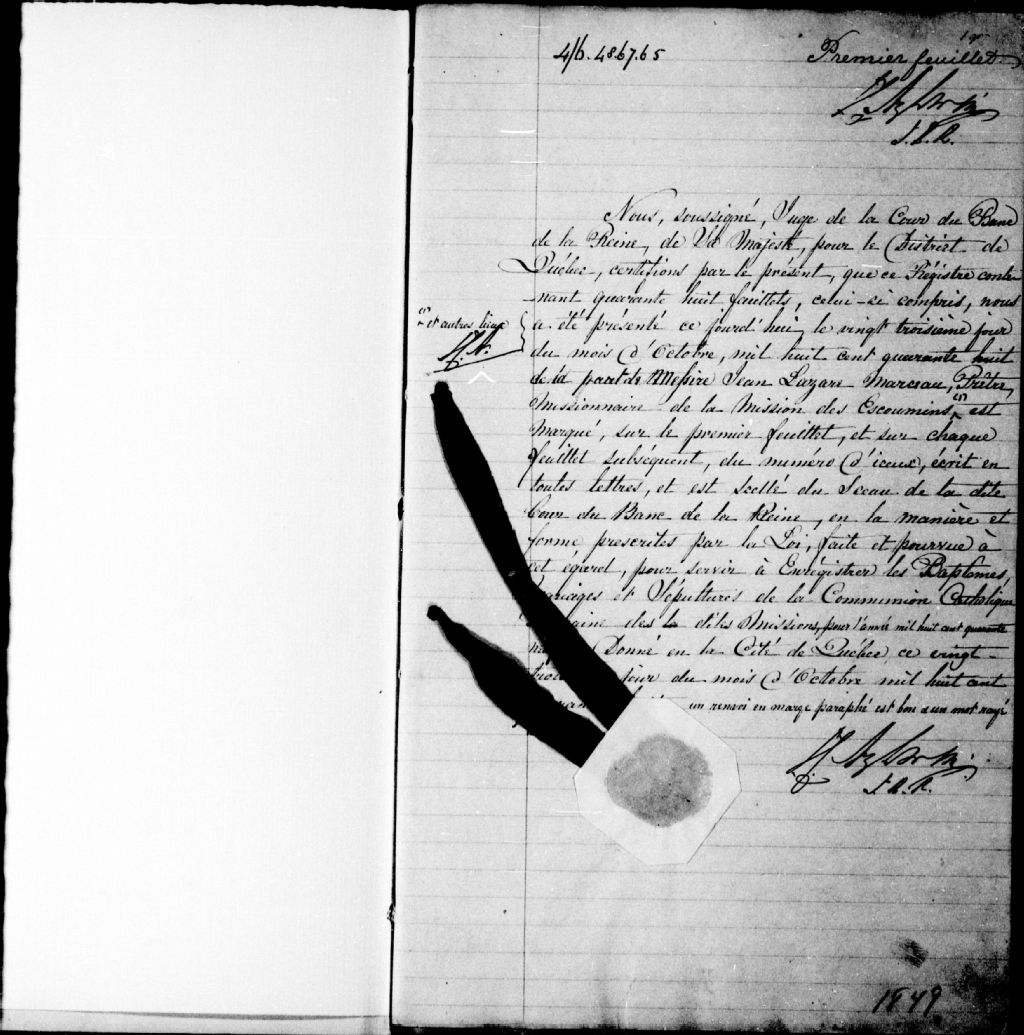 4/6. 4867.65
Premier feuillet
J.B.R.
Nous, soussigné, Juge de la Cour du Banc
de la Reine, de Sa Majesté, pour le District de
Québec, certifions par le présent, que ce Régistre conte-
-nant quarante huit feuillets, celui-ci compris, nous
et autres lieux
a été présenté ce jourd'hui, le vingt troisième jour
du mois d'Octobre, mil huit cent quarante huit
de la part de Messire Jean Lazare Marceau, Prêtre,
Missionnaire de la Mission des Escoumins, est
Marqué, sur le premier feuillet, et sur chaque
feuillet subséquent, du numéro d'iceux, écrit en
toutes lettres, et est scellé du Sceau de la dite
Cour du Banc de la Reine, en la manière et
forme prescrites par la Loi, faite et pourvue à
cet égard, pour servir à Enrégistrer les Baptêmes,
Mariages et Sépultures de la Communion Catholique
des dites Missions, pour l'année mil huit cent quarante
Donné en la Cité de Québec, ce vingt-
jour du mois d'Octobre mil huit cent
un renvoi en marge paraphé est bon & un mot rayé
J.B.R.
1849